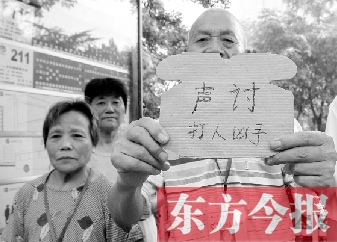 211
声讨
打人凶手
东方今报